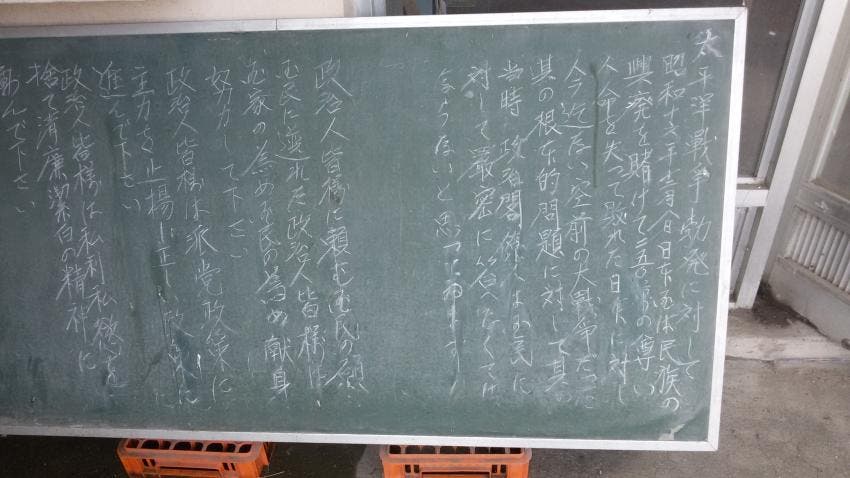 太平洋戦争勃発に対して
昭和十六年十二月八日日本国は民族の
興廃を賭けて三百万の尊い
人命を失って敗れた日本に対し
今迄ない空前の大戦争だった
其の根本的問題に対して其の
当時 政治関係人は国民に
対して厳密に答へなくては
ならないと思っております
政治人皆様に頼む国民の願
国民に選れた政治人皆様は
国家の為め国民の為め献身
努力して下さい
政治人皆様は派党政策に
主力を止揚し正しい政策に
進んで下さい
政治人皆様は私利私慾を
捨て清廉潔白の精神に
励んで下さい